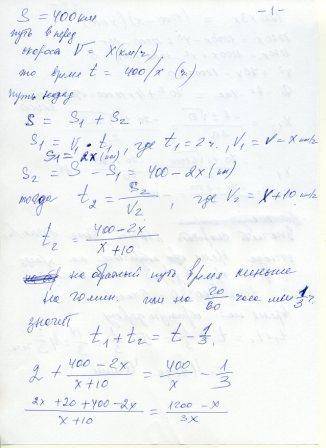 -1-
S = 400 км
путь вперед
скорость V = x (км/ч)
то время t = 400/x (ч)
путь назад
S = S₁ + S₂
S₁ = V₁ · t₁, где t₁ = 2 ч., V₁ = V = x км/ч
S₁ = 2x (км)
S₂ = S - S₁ = 400 - 2x (км)
тогда t₂ = S₂/V₂, где V₂ = x + 10 км/ч
t₂ = (400 - 2x)/(x + 10)
на обратный путь время меньше
на 20 мин. или на 20/60 часа или 1/3 ч.
значит
t₁ + t₂ = t - 1/3,
2 + (400 - 2x)/(x + 10) = 400/x - 1/3
(2x + 20 + 400 - 2x)/(x + 10) = (1200 - x)/3x